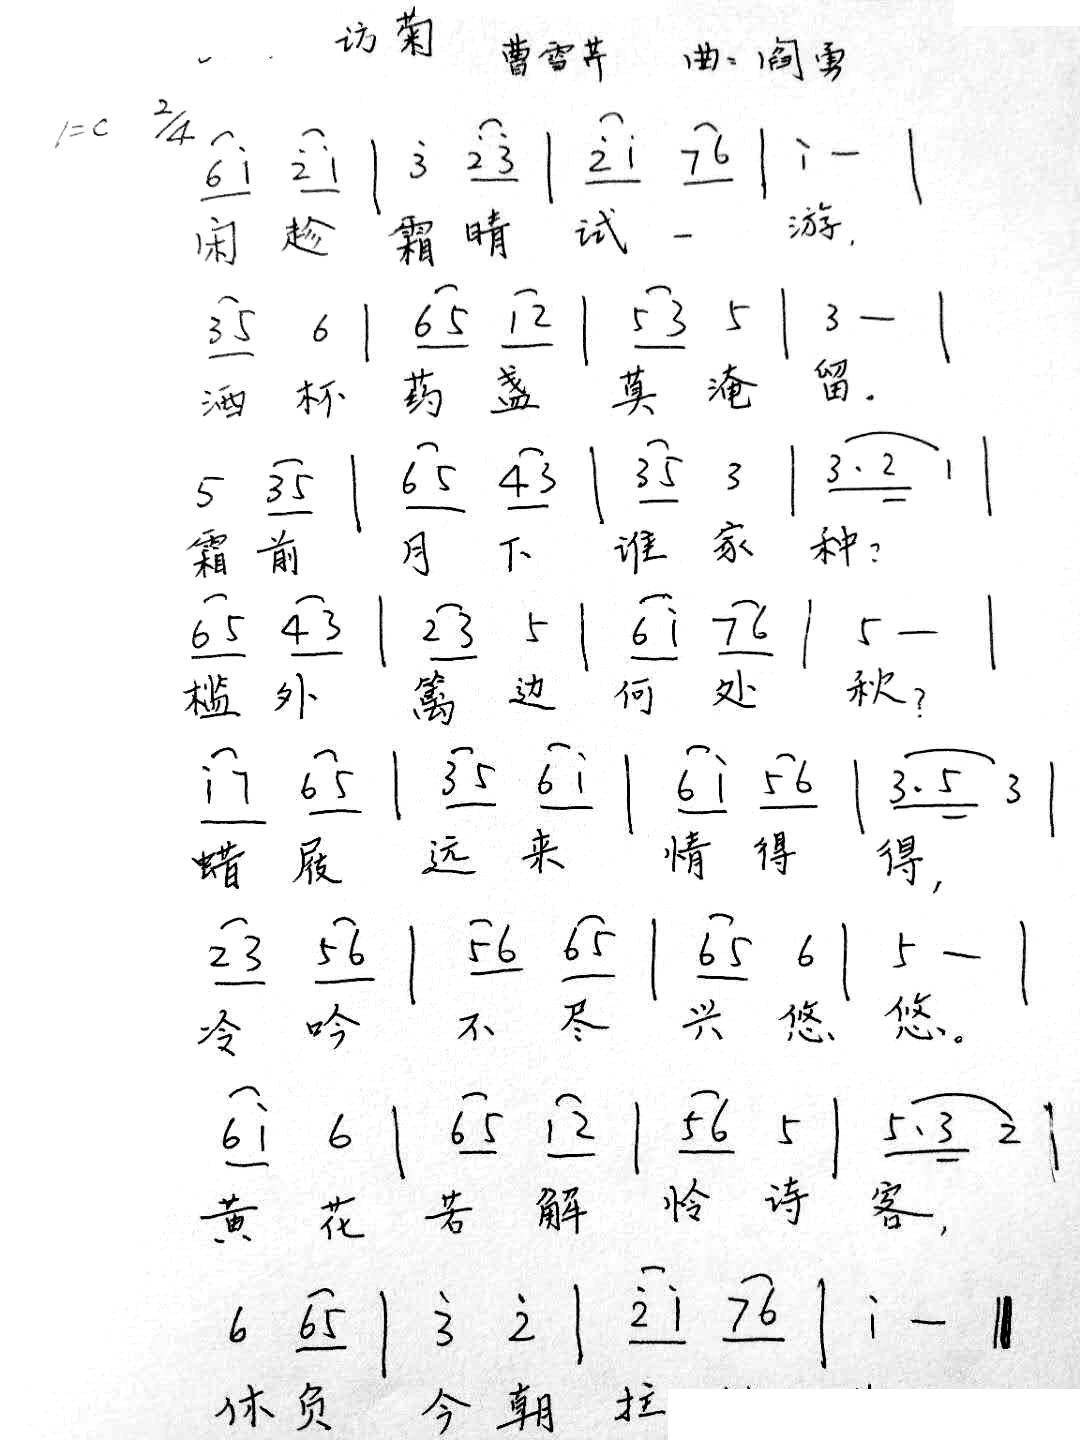 访菊
曹雪芹 曲：阎勇
1=C 2/4
6i 2̇i | 3̇ 2̇3̇ | 2̇i 76 | i — |
闲趁霜晴试一游，
35 6 | 65 12 | 53 5 | 3 — |
酒杯药盏莫淹留。
5 35 | 65 43 | 35 3 | 3·2 1 |
霜前月下谁家种？
65 43 | 23 5 | 6i 76 | 5 — |
槛外篱边何处秋？
i7 65 | 35 6i | 6i 56 | 3·5 3 |
蜡屐远来情得得，
23 56 | 56 65 | 65 6 | 5 — |
冷吟不尽兴悠悠。
6i 6 | 65 12 | 56 5 | 5·3 2 |
黄花若解怜诗客，
6 65 | 3̇ 2̇ | 2̇i 76 | i — ‖
休负今朝拄